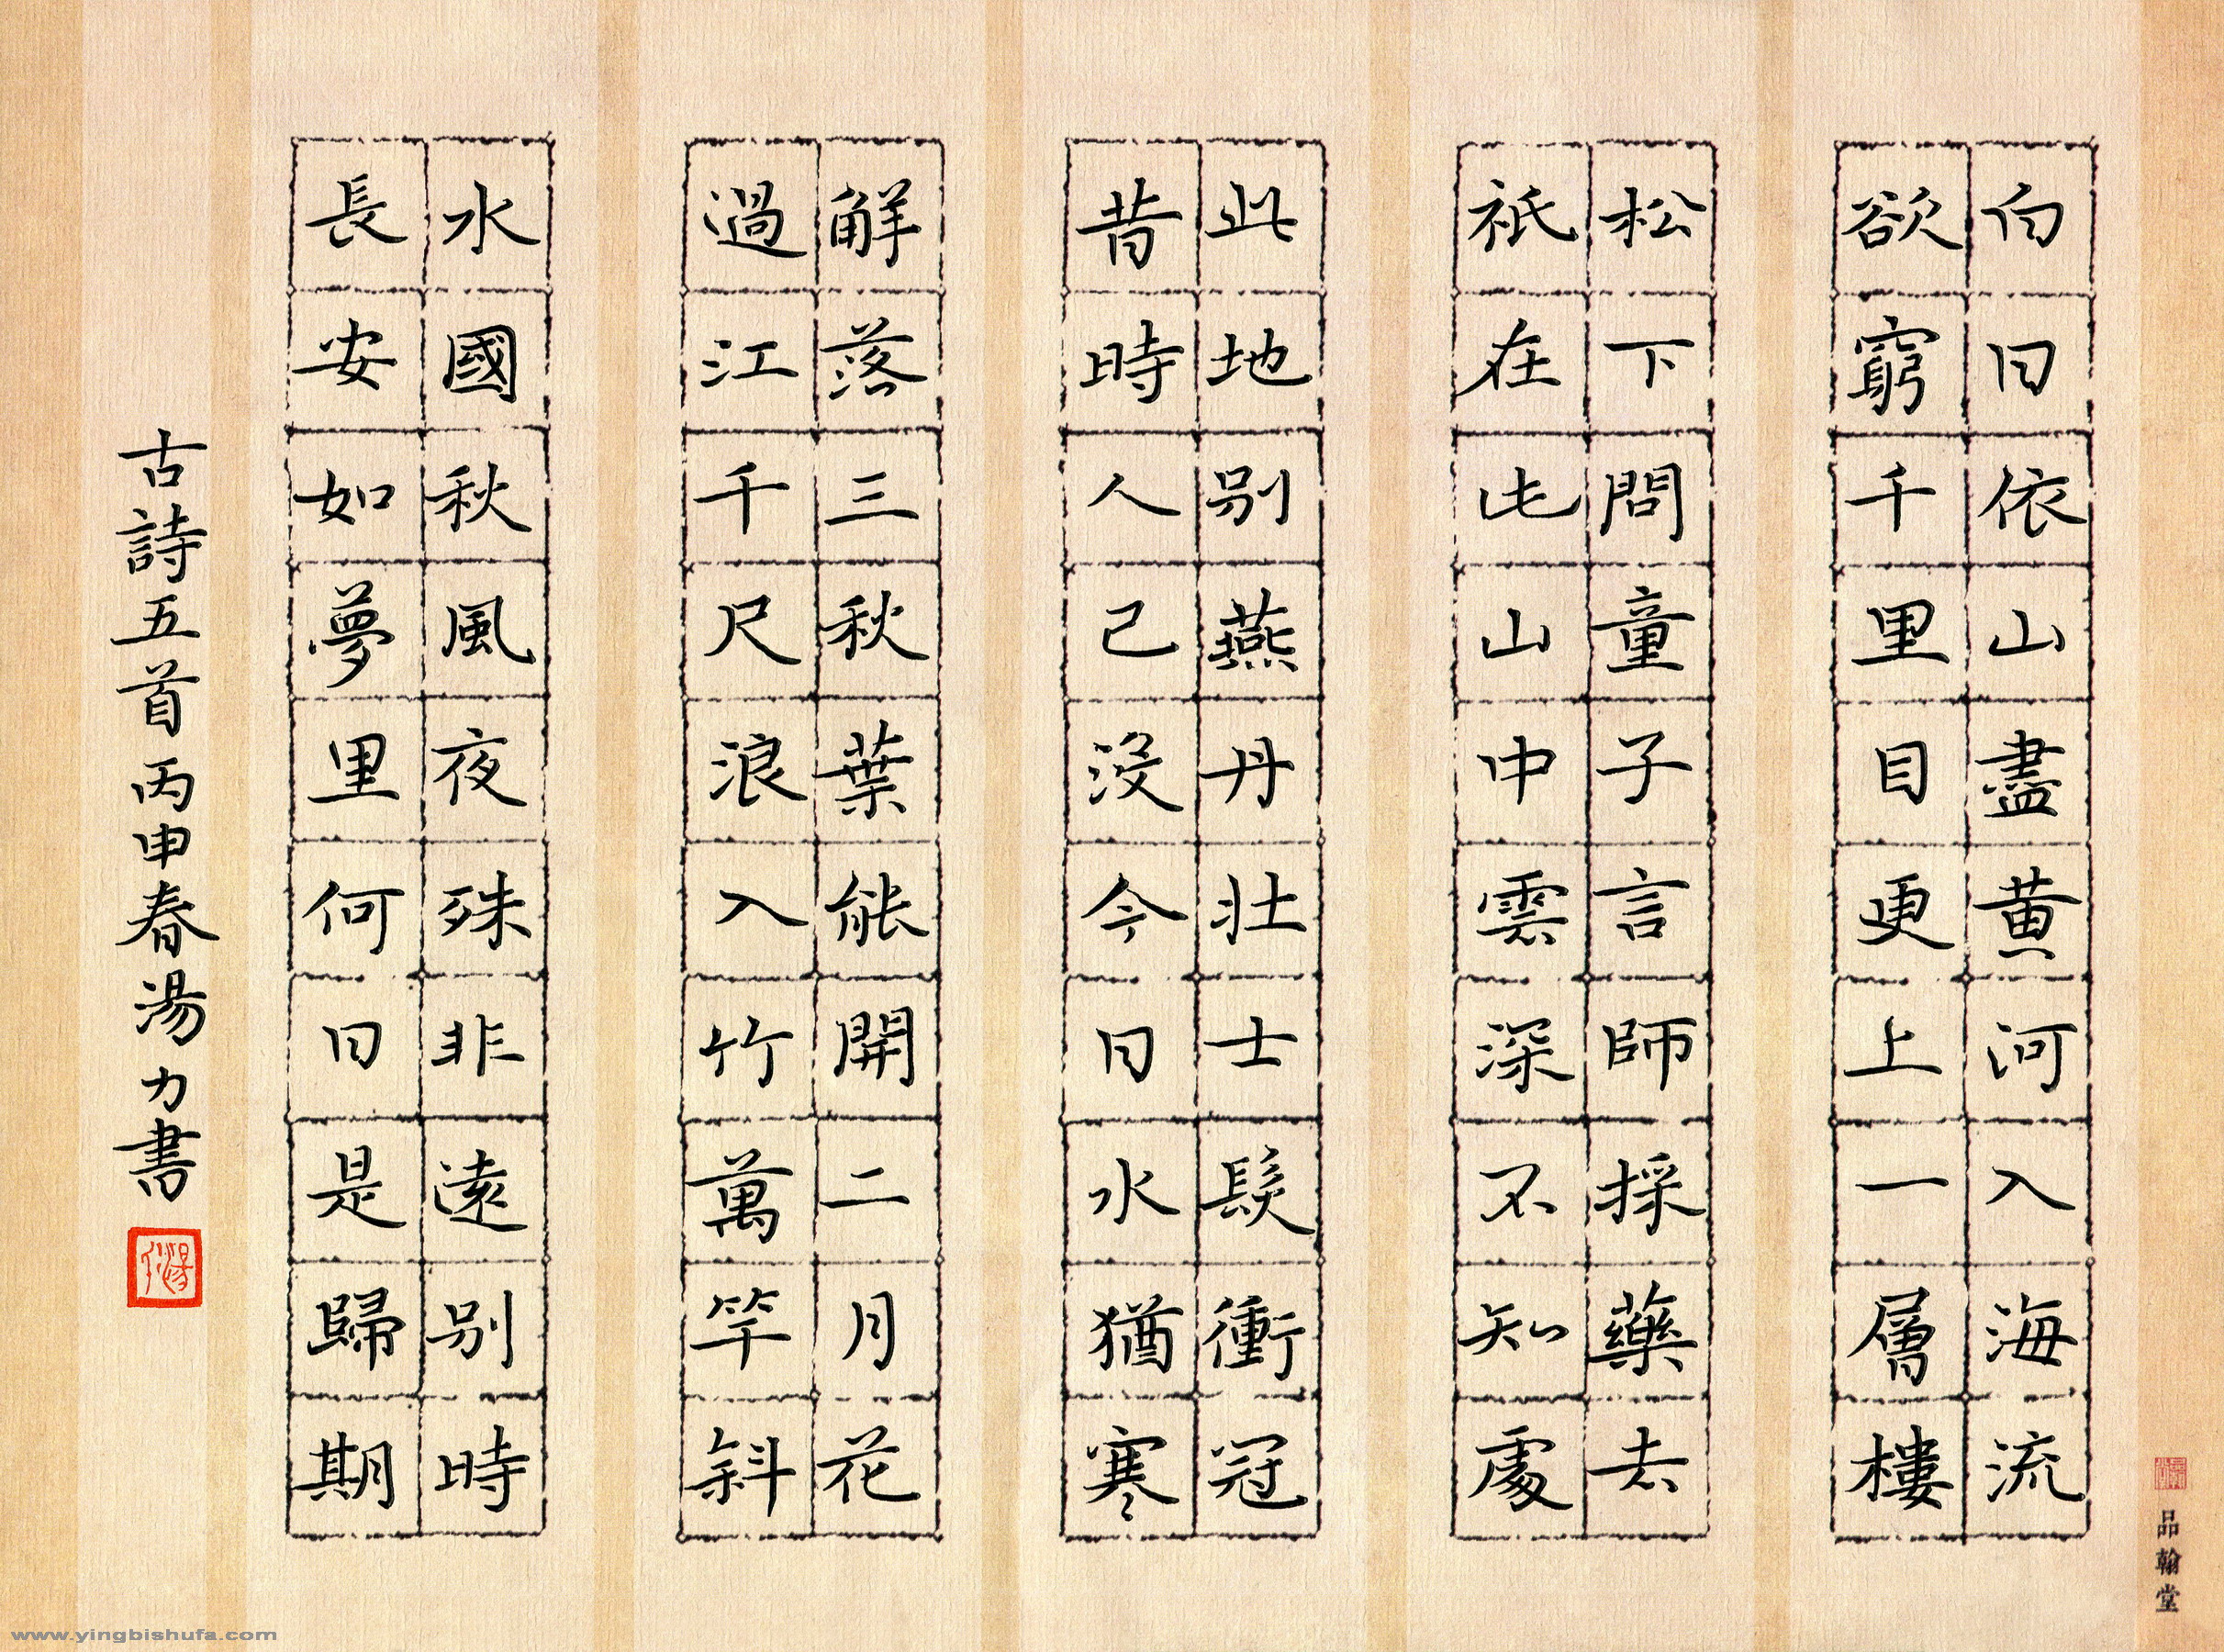 白日依山盡黄河入海流
欲窮千里目更上一層樓
松下問童子言師採藥去
衹在此山中雲深不知處
此地别燕丹壮士髮衝冠
昔時人已没今日水猶寒
解落三秋葉能開二月花
過江千尺浪入竹萬竿斜
水國秋風夜殊非遠别時
長安如夢里何日是歸期
古詩五首丙申春湯力書
品翰堂
www.yingbishufa.com